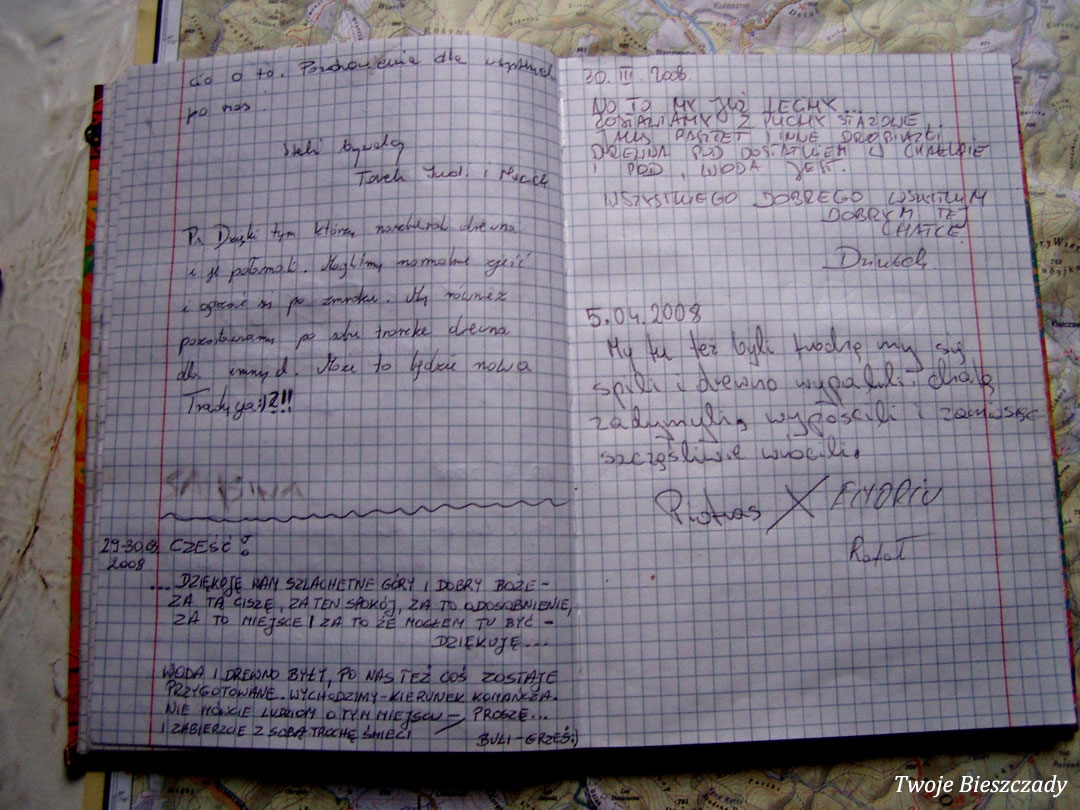 co o to. Pozdrowienia dla wszystkich
po nas
Stali bywalcy
Ps. Dzięki tym którzy narąbali drewna
i je połamali. Mogliśmy normalnie zjeść
i ogrzać się po zmroku. My również
pozostawiamy po sobie troszkę drewna
dla innych. Może to będzie nowa
Tradycja:)?!!
SABINA
29-30.03 CZEŚĆ!
2008
... DZIĘKUJĘ WAM SZLACHETNE GÓRY I DOBRY BOŻE -
ZA TĄ CISZĘ, ZA TEN SPOKÓJ, ZA TO ODOSOBNIENIE,
ZA TO MIEJSCE I ZA TO ŻE MOGŁEM TU BYĆ -
DZIĘKUJĘ...
WODA I DREWNO BYŁY, PO NAS TEŻ COŚ ZOSTAJE
PRZYGOTOWANE. WYCHODZIMY - KIERUNEK KOMAŃCZA.
NIE MÓWCIE LUDZIOM O TYM MIEJSCU = PROSZĘ...
I ZABIERZCIE Z SOBĄ TROCHĘ ŚMIECI
BULI - GRZEŚ:)
30. III. 2008.
NO TO MY JUŻ LECIMY...
ZOSTAWIAMY 2 PUCHY
PASZTET I INNE DROBIAZKI.
DREWNA POD DOSTATKIEM W CHAŁUPIE
I POD, WODA JEST.
WSZYSTKIEGO DOBREGO WSZYSTKIM
DOBRYM TEJ
CHATCE
5.04.2008
My tu też byli wódzię my się
spili i drewno wypalili, chatę
zadymyli, wypościli i
szczęśliwie wrócili.
Piotras X
Rafał
Twoje Bieszczady